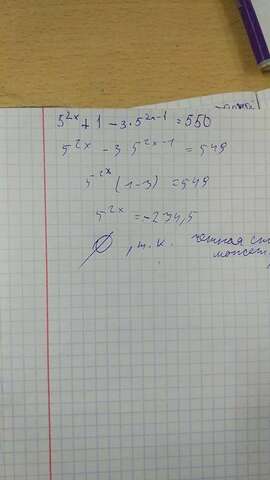 5^2x + 1 - 3·5^2x-1 = 550
5^2x - 3 5^2x-1 = 549
5^2x (1-3) = 549
5^2x = -234,5
∅, т.к. четная
может